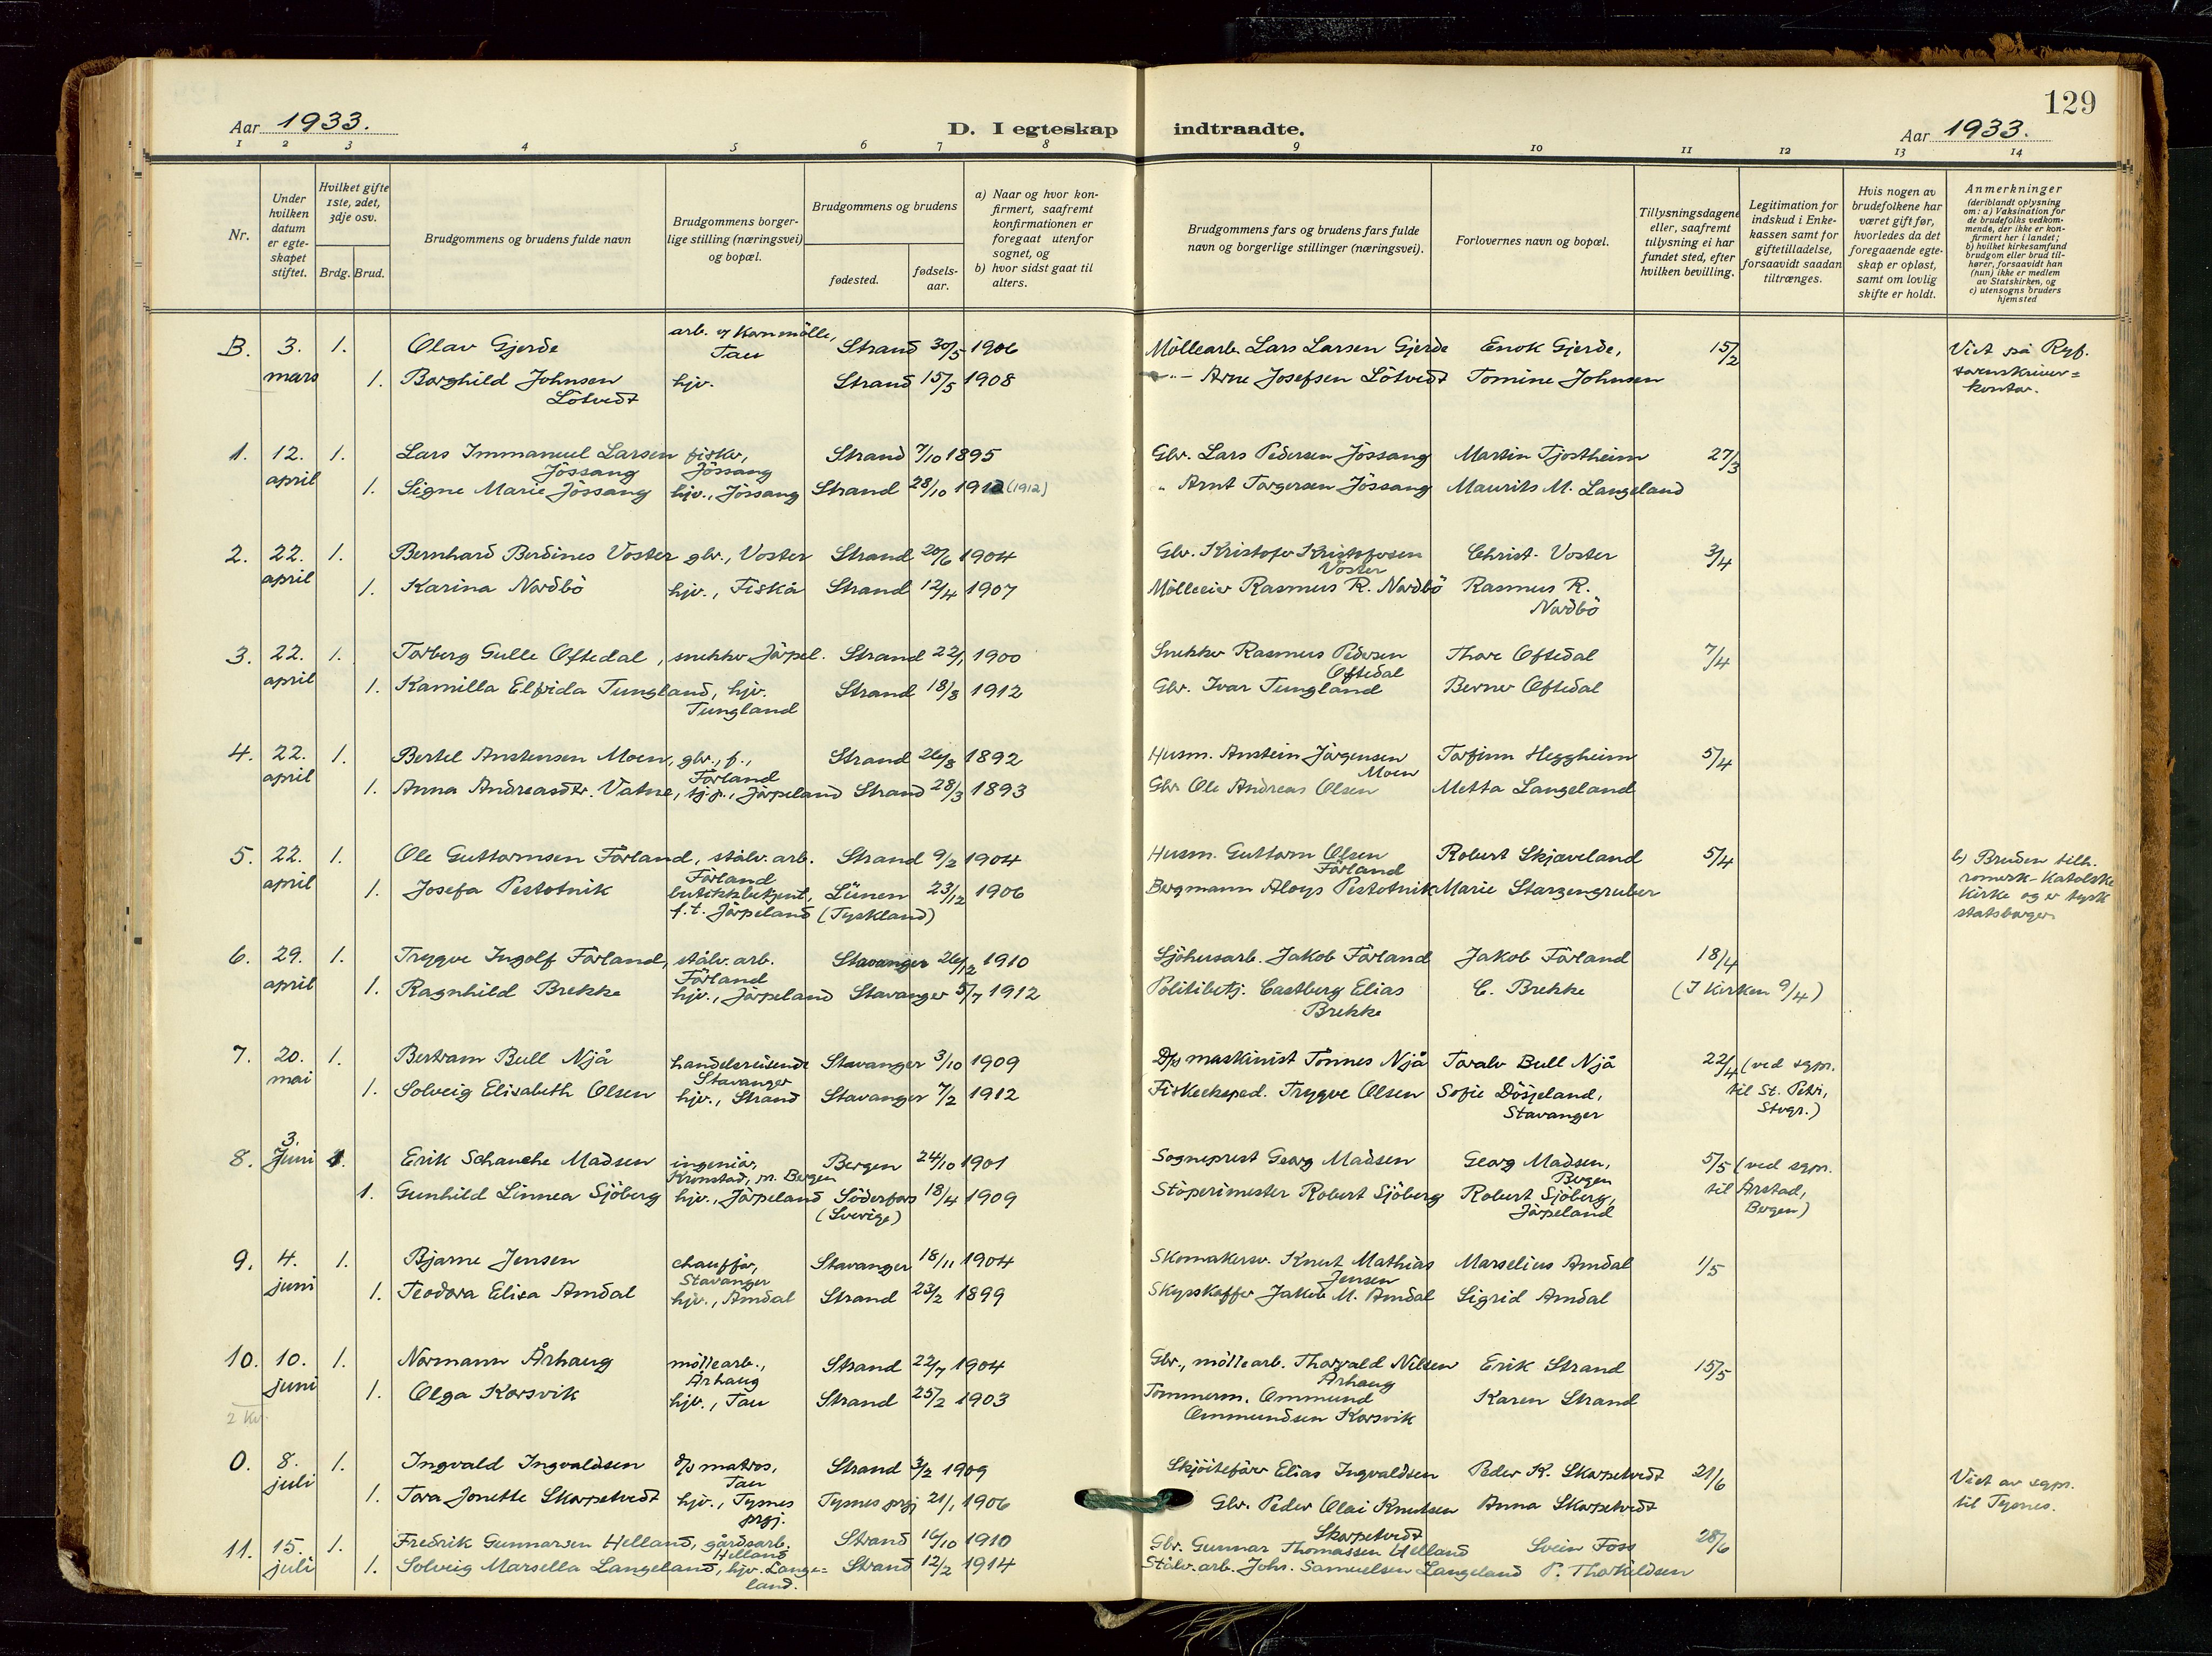 129
Aar 1933. D. I egteskap indtraadte. Aar 1933.
1 2 3 4 5 6 7 8 9 10 11 12 13 14
Nr.
Under hvilken datum er egteskapet stiftet.
Hvilket gifte 1ste, 2det, 3dje osv.
Brdg. Brud.
Brudgommens og brudens fulde navn
Brudgommens borgerlige stilling (næringsvei) og bopæl.
Brudgommens og brudens
fødested.
fødselsaar.
a) Naar og hvor konfirmert, saafremt konfirmationen er foregaat utenfor sognet, og
b) hvor sidst gaat til alters.
Brudgommens fars og brudens fars fulde navn og borgerlige stillinger (næringsvei).
Forlovernes navn og bopæl.
Tillysningsdagene eller, saafremt tillysning ei har fundet sted, efter hvilken bevilling.
Legitimation for indskud i Enkekassen samt for giftetilladelse, forsaavidt saadan tiltrænges.
Hvis nogen av brudefolkene har været gift før, hvorledes da det foregaaende egteskap er opløst, samt om lovlig skifte er holdt.
Anmerkninger (deriblandt oplysning om: a) Vaksination for de brudefolks vedkommende, der ikke er konfirmert her i landet; b) hvilket kirkesamfund brudgom eller brud tilhører, forsaavidt han (hun) ikke er medlem av Statskirken, og c) utensogns bruders hjemsted
B. 3. mars 1. Olav Gjerde arb. v/ Kornmölle, Tau Strand 30/5 1906 Möllearb. Lars Larsen Gjerde Enok Gjerde, 15/2 Viet på Ryf. sorenskriver=kontor.
1. Borghild Johnsen Lötvedt hjv. Strand 15/5 1908 -"- Arne Josefsen Lötvedt Tomine Johnsen
1. 12. april 1. Lars Immanuel Larsen Jössang fisker, Jössang Strand 7/10 1895 Gbr. Lars Pedersen Jössang Martin Tjostheim 27/3
1. Signe Marie Jössang hjv., Jössang Strand 28/10 1912 (1912) " Arnt Torgersen Jössang Maurits M. Langeland
2. 22. april 1. Bernhard Berdines Voster gbr., Voster Strand 20/6 1904 Gbr. Kristofer Kristofersen Voster Christ. Voster 3/4
1. Karina Nordbö hjv., Fiskå Strand 12/4 1907 Mölleeier Rasmus R. Nordbö Rasmus R. Nordbö
3. 22. april 1. Torberg Gulle Oftedal, snekker Jörpel. Strand 22/1 1900 Snekker Rasmus Pedersen Oftedal Thore Oftedal 7/4
1. Kamilla Elfrida Tungland, hjv. Tungland Strand 18/8 1912 Gbr. Ivar Tungland Berner Oftedal
4. 22. april 1. Bertel Anstensen Moen, gbr., f., Förland Strand 26/8 1892 Husm. Anstein Jörgensen Moen Torfinn Heggheim 5/4
1. Anna Andreasdtr. Vatne, tj.p., Jörpeland Strand 28/3 1893 Gbr Ole Andreas Olsen Metta Langeland
5. 22. april 1. Ole Guttormsen Förland, stålv. arb. Förland Strand 9/2 1904 Husm. Guttorm Olsen Förland Robert Skjæveland 5/4 b) Bruden tilh. romersk-katolske kirke og er tysk statsborger
1. Josefa Pestotnik butikkbetjent, f.t. Jörpeland Lünen (Tyskland) 23/12 1906 Bergmann Aloys Pestotnik Marie Starzengruber
6. 29. april 1. Trygve Ingolf Förland, stålv. arb. Förland Stavanger 26/12 1910 Sjöhusarb. Jakob Förland Jakob Förland 18/4
1. Ragnhild Brekke hjv., Jörpeland Stavanger 5/7 1912 Politibetj. Castberg Elias Brekke C. Brekke (I Kirken 9/4)
7. 20. mai 1. Bertram Bull Njå handelsreisende Stavanger Stavanger 3/10 1909 D/s maskinist Tönnes Njå Toralv Bull Njå 22/4 (ved sgpr. til St. Petri, Stvgr.)
1. Solveig Elisabeth Olsen hjv., Strand Stavanger 7/2 1912 Fiskeeksped. Trygve Olsen Sofie Dösjeland, Stavanger
8. 3. juni 1. Erik Schanche Madsen ingeniör, Kronstad, pr. Bergen Bergen 24/10 1901 Sogneprest Georg Madsen Georg Madsen, Bergen 5/5 (ved sgpr. til Årstad, Bergen)
1. Gunhild Linnea Sjöberg hjv., Jörpeland Söderfors (Sverige) 18/4 1909 Stöperimester Robert Sjöberg Robert Sjöberg, Jörpeland
9. 4. juni 1. Bjarne Jensen chaufför, Stavanger Stavanger 18/11 1904 Skomakersv. Knut Mathias Jensen Marselius Amdal 1/5
1. Teodora Elisa Amdal hjv., Amdal Strand 23/2 1899 Skysskaffer Jakob M. Amdal Sigrid Amdal
10. 10. juni 1. Normann Århaug möllearb., Århaug Strand 22/7 1904 Gbr., möllearb. Thorvald Nilsen Århaug Erik Strand 15/5
1. Olga Korsvik hjv., Tau Strand 25/2 1903 Tömmerm. Ommund Ommundsen Korsvik Karen Strand
2 Kv.
0. 8. juli 1. Ingvald Ingvaldsen d/s matros, Tau Strand 3/2 1909 Skjöitefører Elias Ingvaldsen Peder K. Skorpetvedt 21/6 Viet av sgpr. til Tysnes.
1. Tora Jonette Skorpetvedt hjv., Tysnes prgj. Tysnes prgj 21/1 1906 Gbr. Peder Olai Knutsen Skorpetvedt Anna Skorpetvedt
11. 15. juli 1. Fredrik Gunnarsen Helland, gårdsarb. Helland Strand 16/10 1910 Gbr. Gunnar Thomassen Helland Svein Foss 28/6
1. Solveig Marsella Langeland, hjv. Lange=land. Strand 12/2 1914 Stålv. arb. Johs. Samuelsen Langeland P. Thorkildsen